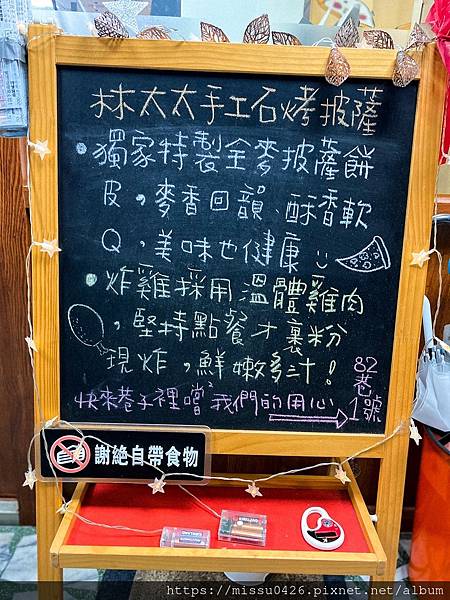 林太太手工石烤披薩
•獨家特製全麥披薩餅
皮，麥香回韻、酥香軟
Q，美味也健康
•炸雞採用溫體雞肉
，堅持點餐才裹粉
現炸，鮮嫩多汁！
快來巷子裡嚐我們的用心
82
巷
1號
謝絕自帶食物
https://missu0426.pixnet.net/album